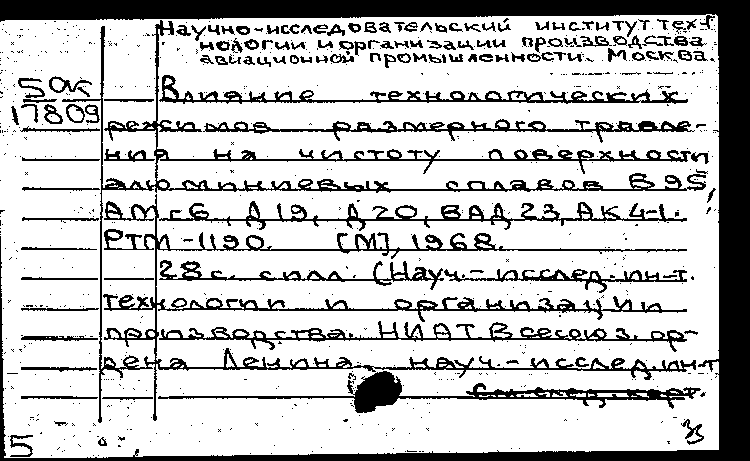 Научно-исследовательский институт тех-
нологии и организации производства
авиационной промышленности. Москва.
50к
17809
Влияние технологических
режимов размерного травле-
ния на чистоту поверхности
алюминиевых сплавов В95,
АМг6, Д19, Д20, ВАД23, АК4-1.
РТМ-1190. [М], 1968.
28с. с илл. (Науч.-исслед. ин-т.
технологии и организации
производства. НИАТ. Всесоюз. ор-
дена Ленина науч.-исслед. ин-т
См. след. карт.
5
33